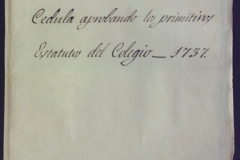 Cedula aprobando los primitivos
Estatutos del Colegio — 1737.